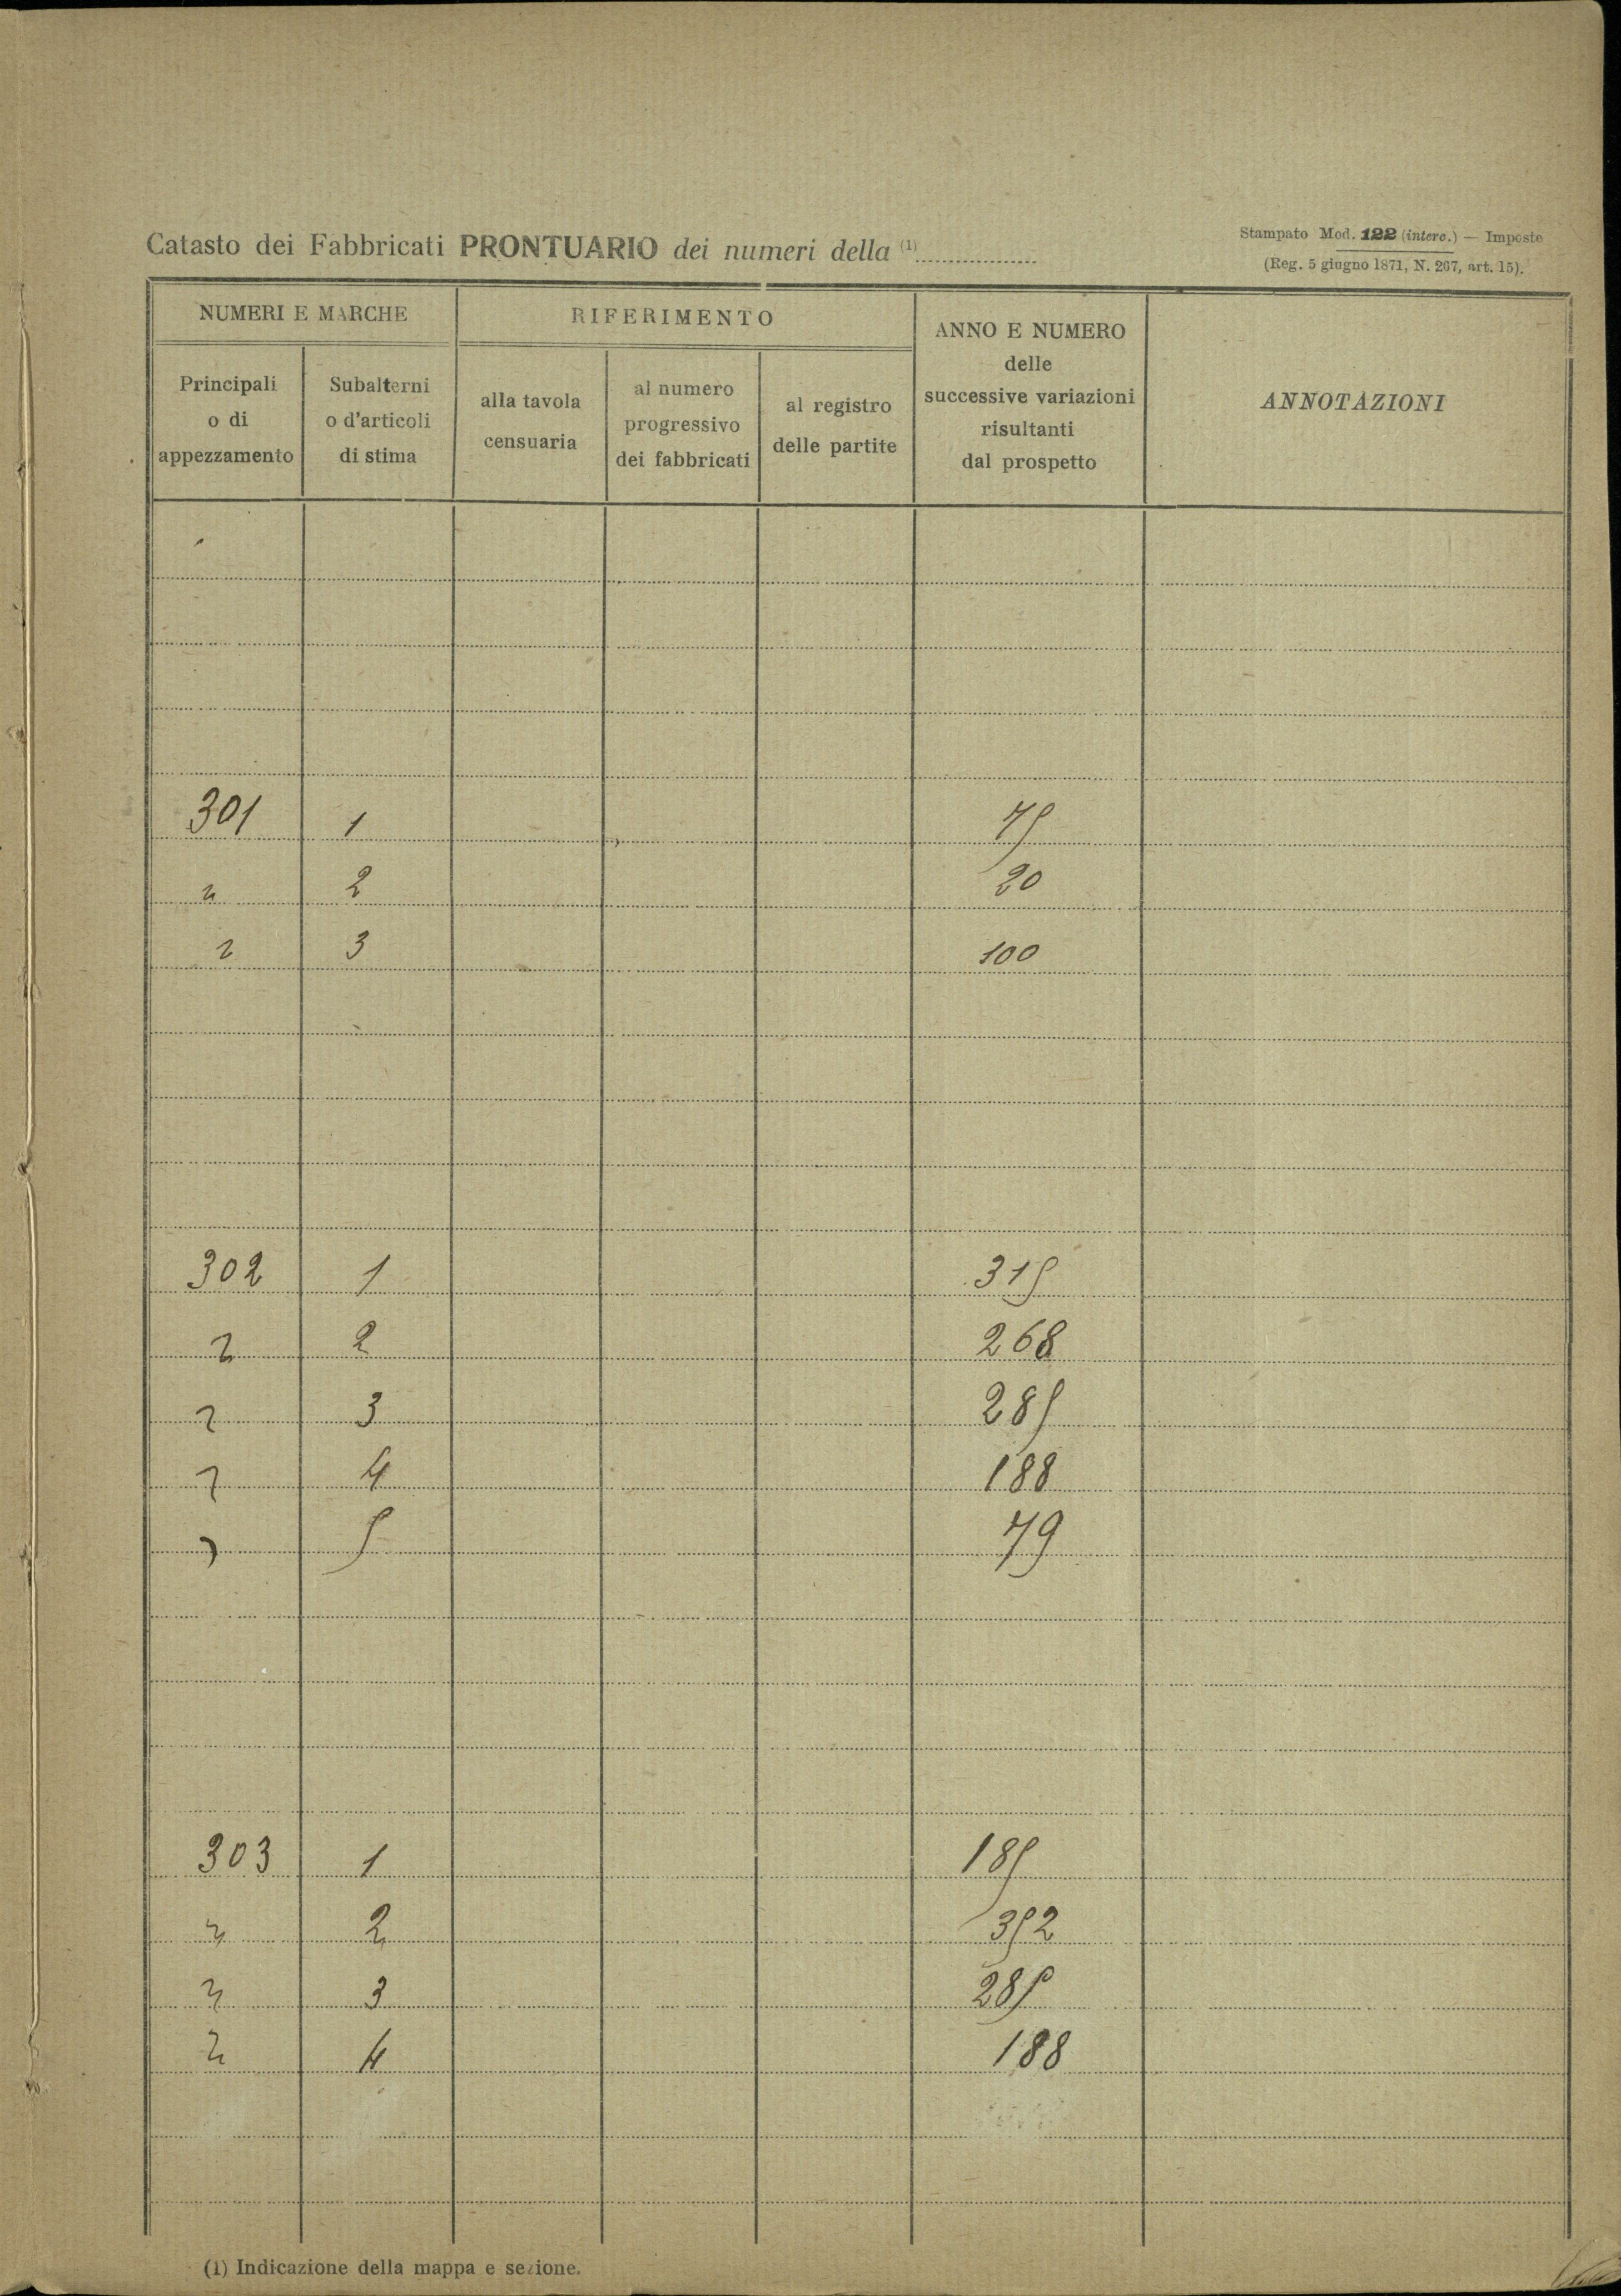 Catasto dei Fabbricati PRONTUARIO dei numeri della (1)
Stampato Mod. 122 (interc.) — Imposte
(Reg. 5 giugno 1871, N. 267, art. 15).
NUMERI E MARCHE
RIFERIMENTO
ANNO E NUMERO
delle
successive variazioni
risultanti
dal prospetto
ANNOTAZIONI
Principali
o di
appezzamento
Subalterni
o d'articoli
di stima
alla tavola
censuaria
al numero
progressivo
dei fabbricati
al registro
delle partite
301 1 75
" 2 20
" 3 100
302 1 315
" 2 268
" 3 285
" 4 188
" 5 79
303 1 185
" 2 352
" 3 285
" 4 188
(1) Indicazione della mappa e sezione.